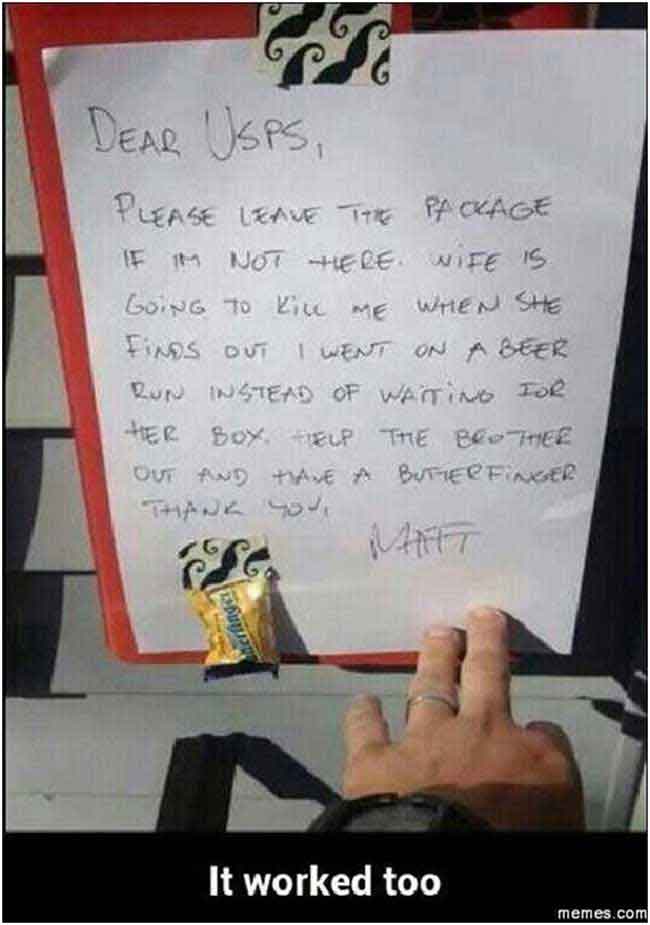 DEAR USPS,
PLEASE LEAVE THE PACKAGE
IF IM NOT HERE. WIFE IS
GOING TO KILL ME WHEN SHE
FINDS OUT I WENT ON A BEER
RUN INSTEAD OF WAITING FOR
HER BOX. HELP THE BROTHER
OUT AND HAVE A BUTTERFINGER
THANK YOU,
MATT
Butterfinger
It worked too
memes.com